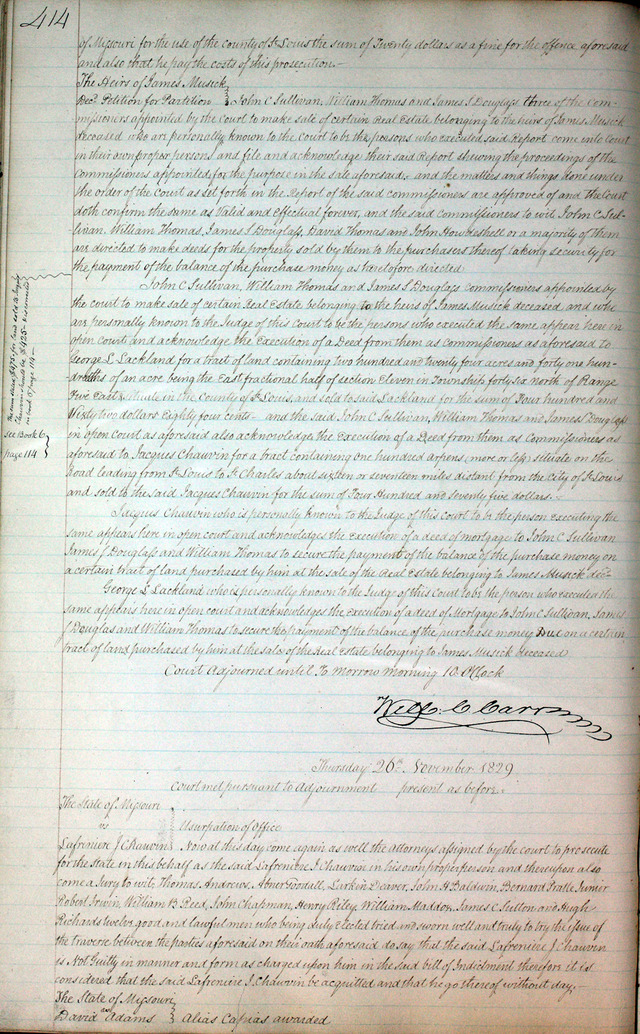 414
of Missouri for the use of the county of St Louis the sum of Twenty dollars as a fine for the offence aforesaid
and also that he pay the costs of this prosecution.—
The Heirs of James Musick
Decd. Petition for Partition } John C Sullivan, William Thomas and James S Douglass three of the com-
missioners appointed by the Court to make sale of certain Real Estate belonging to the heirs of James Musick
deceased who are personally known to the Court to be the persons who executed said Report come into Court
in their own proper persons and file and acknowledge their said Report shewing the proceedings of the
Commissioners appointed for the purpose in the sale aforesaid,- and the matters and things done under
the order of the Court as set forth in the Report of the said commissioners are approved of and the Court
doth confirm the same as Valid and effectual forever, and the said commissioners to wit John C Sul-
livan, William Thomas, James S Douglass, David Thomas and John Howdeshell or a majority of them
are directed to make deeds for the property sold by them to the purchasers thereof taking security for
the payment of the balance of the purchase money as heretofore directed
John C Sullivan, William Thomas and James S Douglass commissioners appointed by
the court to make sale of certain Real Estate belonging to the heirs of James Musick deceased and who
are personally known to the Judge of this Court to be the persons who executed the same appear here in
open Court and acknowledge the Execution of a Deed from them as commissioners as aforesaid to
George L Lackland for a tract of land containing two hundred and twenty four acres and forty one hun-
dredths of an acre being the East fractional half of section Eleven in Township forty six north of Range
Five East situate in the County of St Louis, and sold to said Lackland for the sum of Four hundred and
Sixty two dollars Eighty four cents - and the said John C Sullivan, William Thomas and James S Douglass
in open Court as aforesaid also acknowledge the Execution of a Deed from them as Commissioners as
aforesaid to Jacques Chauvin for a tract containing one hundred arpens, more or less, situate on the
Road leading from St Louis to St Charles about sixteen or seventeen miles distant from the city of St Louis
and sold to the said Jacques Chauvin for the sum of Four Hundred and seventy five dollars.-
see Book 6
page 114
Jacques Chauvin who is personally known to the Judge of this court to be the person executing the
same appears here in open court and acknowledges the execution of a deed of mortgage to John C Sullivan
James S Douglass and William Thomas to secure the payment of the balance of the purchase money on
a certain tract of land purchased by him at the sale of the Real Estate belonging to James Musick decd.
George L Lackland who is personally known to the Judge of this Court to be the person who executed the
same appears here in open court and acknowledges the execution of a deed of Mortgage to John C Sullivan, James
S Douglas and William Thomas to secure the payment of the balance of the purchase money Due on a certain
tract of land, purchased by him at the sale of the Real Estate belonging to James Musick deceased
Court Adjourned until To Morrow morning 10 O'Clock
Will. C Carr
Thursday 26th November 1829
Court met pursuant to Adjournment present as before.
The State of Missouri
vs } Usurpation of Office
Lafreniere J Chauvin } Now at this day come again as well the Attorneys assigned by the court to prosecute
for the State in this behalf as the said Lafreniere J Chauvin in his own proper person and thereupon also
come a Jury to wit, Thomas Andrews, Abner Goodell, Larkin Deaver, John H Baldwin, Bernard Pratte Junior
Robert Irwin, William B Reed, John Chapman, Henry Riley, William Maddox, James C Sutton and Hugh
Richards twelve good and lawful men who being duly Elected tried and sworn well and truly to try the issue of
the traverse between the parties aforesaid on their oath aforesaid do say that the said Lafreniere J Chauvin
is Not Guilty in manner and form as charged upon him in the said bill of Indictment therefore it is
considered that the said Lafreniere J. Chauvin be acquitted and that he go thereof without day.-
The State of Missouri
vs
David Adams } Alias Capias awarded